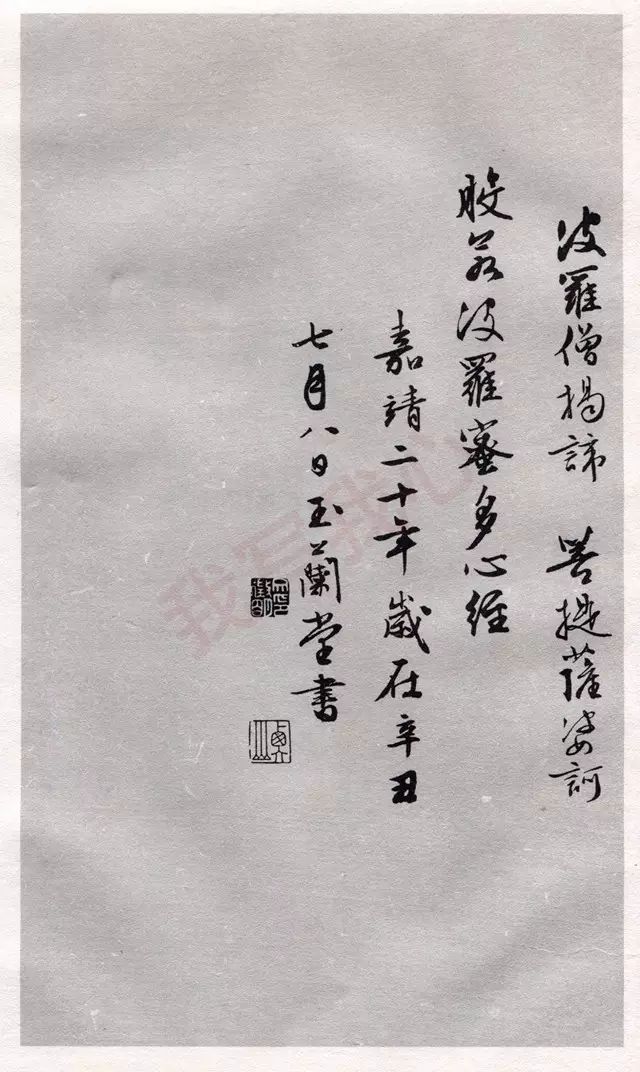 波羅僧揭諦 菩提薩婆訶
般若波羅蜜多心經
嘉靖二十年歲在辛丑
七月八日玉蘭堂書
我写我心